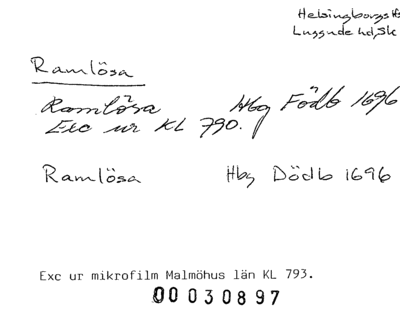 Helsingborgs
Luggude hd, Sk
Ramlösa
Ramlösa Hbg Födb 1696
Exc ur KL 790.
Ramlösa Hbg Dödb 1696
Exc ur mikrofilm Malmöhus län KL 793.
00030897